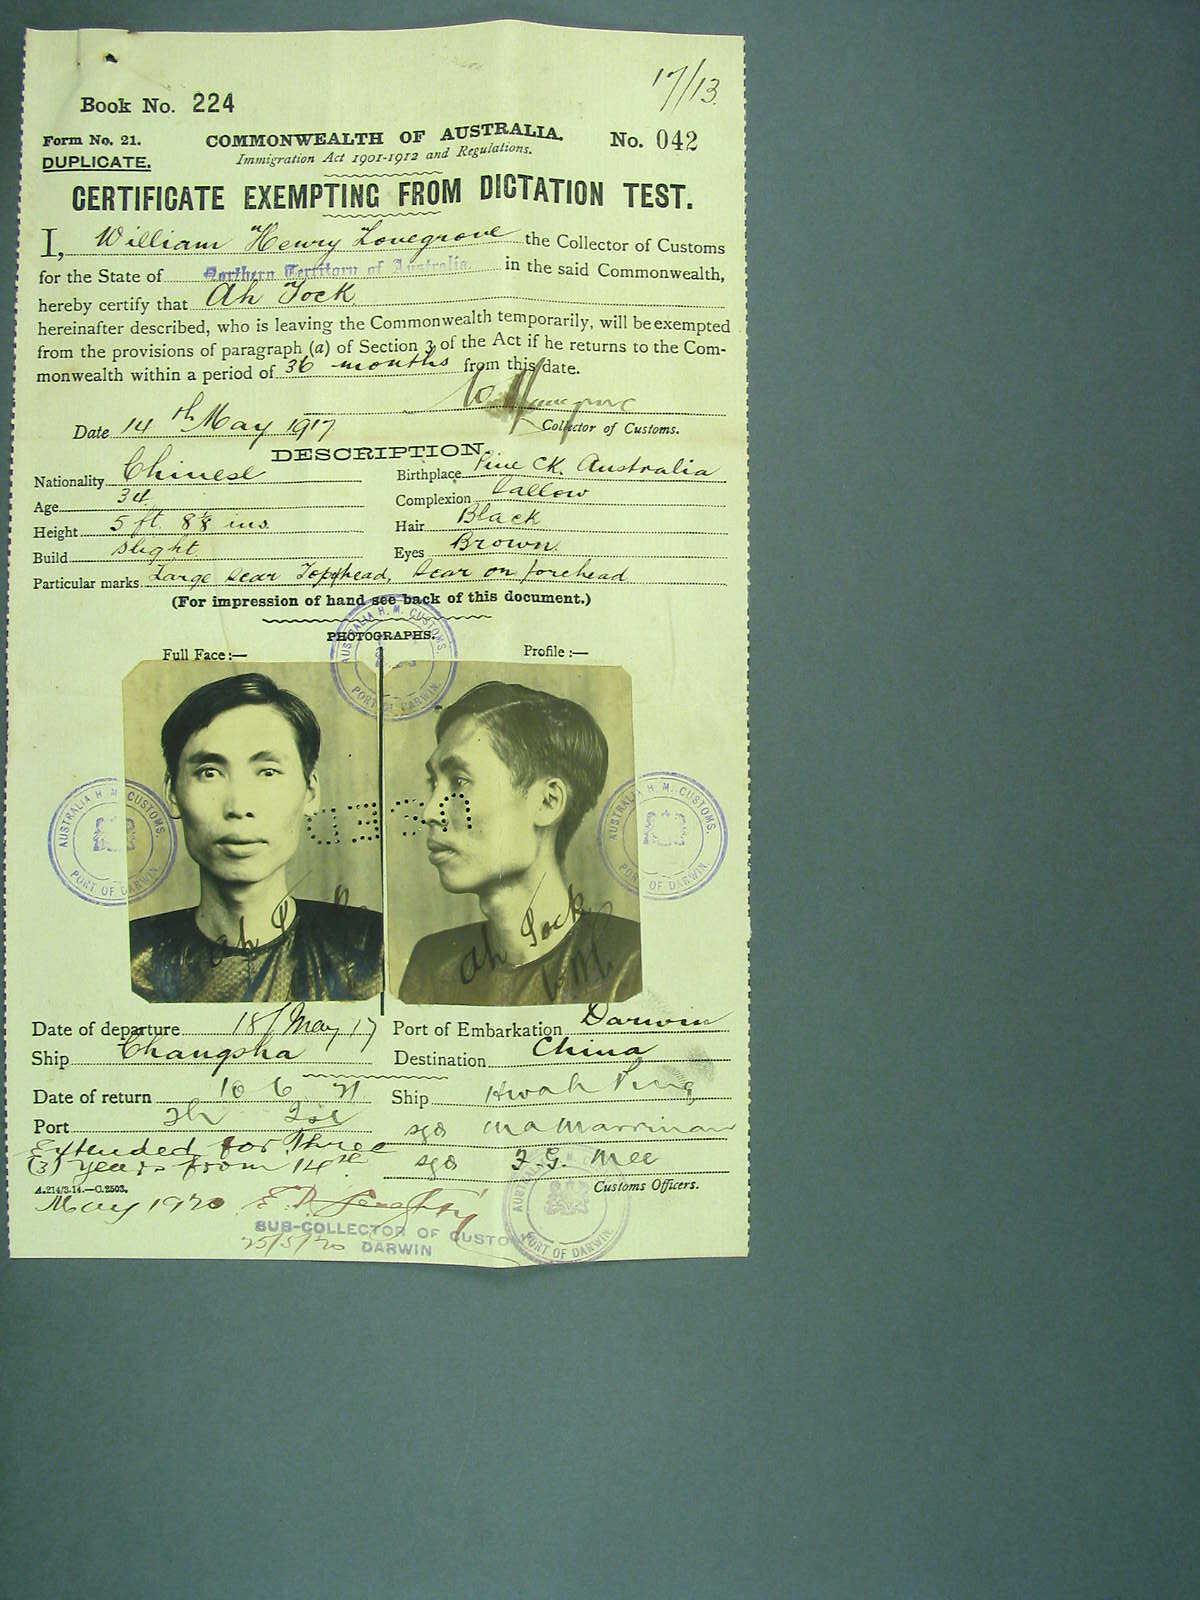 17/13.
Book No. 224
Form No. 21. COMMONWEALTH OF AUSTRALIA. No. 042
DUPLICATE. Immigration Act 1901-1912 and Regulations.
CERTIFICATE EXEMPTING FROM DICTATION TEST.
I, William Henry Lovegrove the Collector of Customs
for the State of Northern Territory of Australia in the said Commonwealth,
hereby certify that Ah Sock
hereinafter described, who is leaving the Commonwealth temporarily, will be exempted
from the provisions of paragraph (a) of Section 3 of the Act if he returns to the Com-
monwealth within a period of 36 months from this date.
Date 14th May 1917 Collector of Customs.
DESCRIPTION.
Nationality Chinese Birthplace Pine Ck. Australia
Age 34 Complexion Sallow
Height 5 ft. 8⅛ ins. Hair Black
Build Slight Eyes Brown.
Particular marks Large scar Top head, scar on forehead
(For impression of hand see back of this document.)
PHOTOGRAPHS.
Full Face:— Profile:—
AUSTRALIA H. M. CUSTOMS. PORT OF DARWIN.
AUSTRALIA H. M. CUSTOMS. PORT OF DARWIN.
AUSTRALIA H. M. CUSTOMS. PORT OF DARWIN.
USED
Ah Sock
Ah Sock
Date of departure 18/May 17 Port of Embarkation Darwin
Ship Changsha Destination China
Date of return 10 6 21 Ship Hwah Ping
Port sgd
Extended for Three
(3) years from 14th sgd F. G. Mee
A.214/3.14.—C.2503. Customs Officers.
May 1920
SUB-COLLECTOR OF CUSTOMS
25/5/20 DARWIN
PORT OF DARWIN.